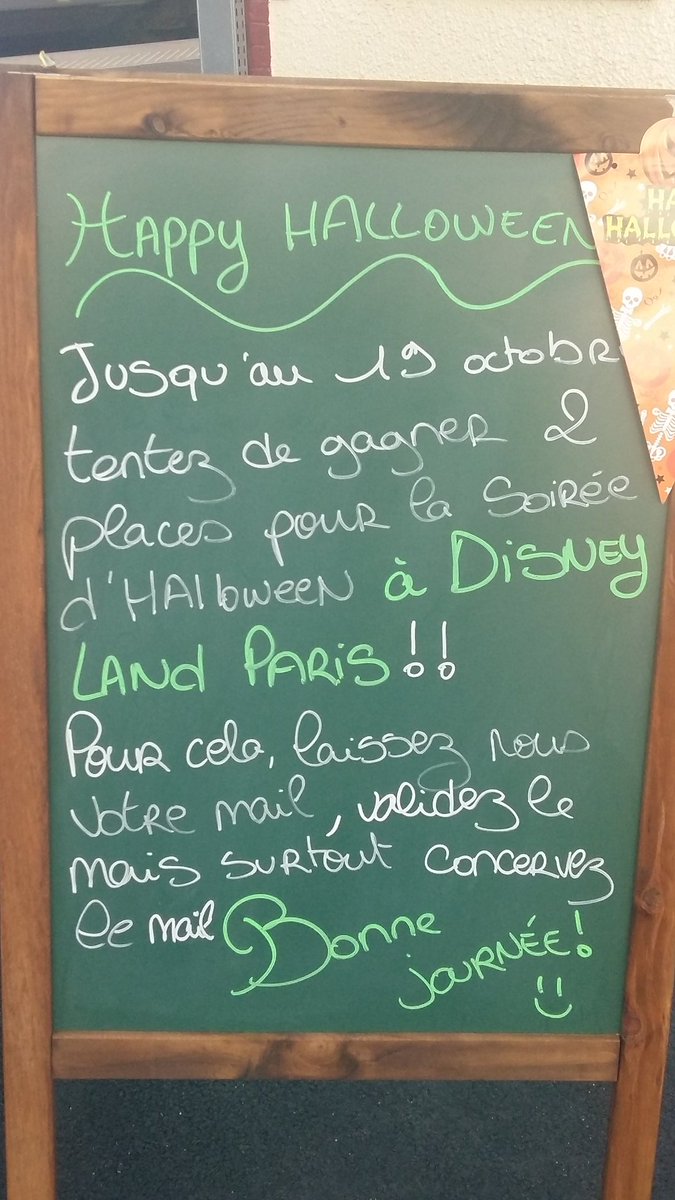 Happy HALLOWEEN
Jusqu'au 19 octobr
tentez de gagner 2
places pour la Soirée
d'HAlloween à Disney
LANd PARis !!
Pour cela, laissez nous
votre mail, validez le
mais surtout concervez
le mail Bonne
journée !
HA
HALLO